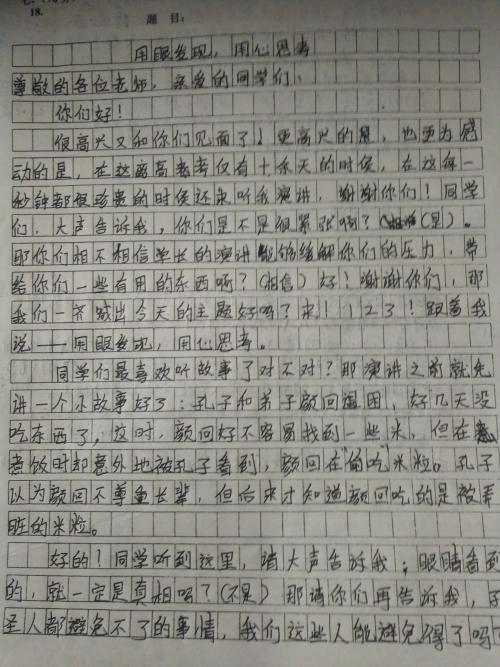 18.
题 目:
用眼发现，用心思考
尊敬的各位老师，亲爱的同学们：
你们好！
很高兴又和你们见面了！更高兴的是，也更为感
动的是，在这离高考仅有十余天的时候，在这每一
秒钟都很珍贵的时候还来听我演讲，谢谢你们！同学
们，大声告诉我，你们是不是很紧张啊？（是）。
那你们相不相信学长的演讲能够缓解你们的压力，带
给你们一些有用的东西啊？（相信）好！谢谢你们，那
我们一齐喊出今天的主题好吗？来！123！跟着我
说——用眼发现，用心思考。
同学们最喜欢听故事了对不对？那演讲之前就先
讲一个小故事好了：孔子和弟子颜回遇困，好几天没
吃东西了，这时，颜回好不容易找到一些米，但在
煮饭时却意外地被孔子看到，颜回在“偷吃”米粒。孔子
以为颜回不尊重长辈，但后来才知道颜回吃的是被弄
脏的米粒。
好的！同学听到这里，请大声告诉我；眼睛看到
的，就一定是真相吗？（不是）那请你们再告诉我，
圣人都避免不了的事情，我们这些人能避免得了吗？